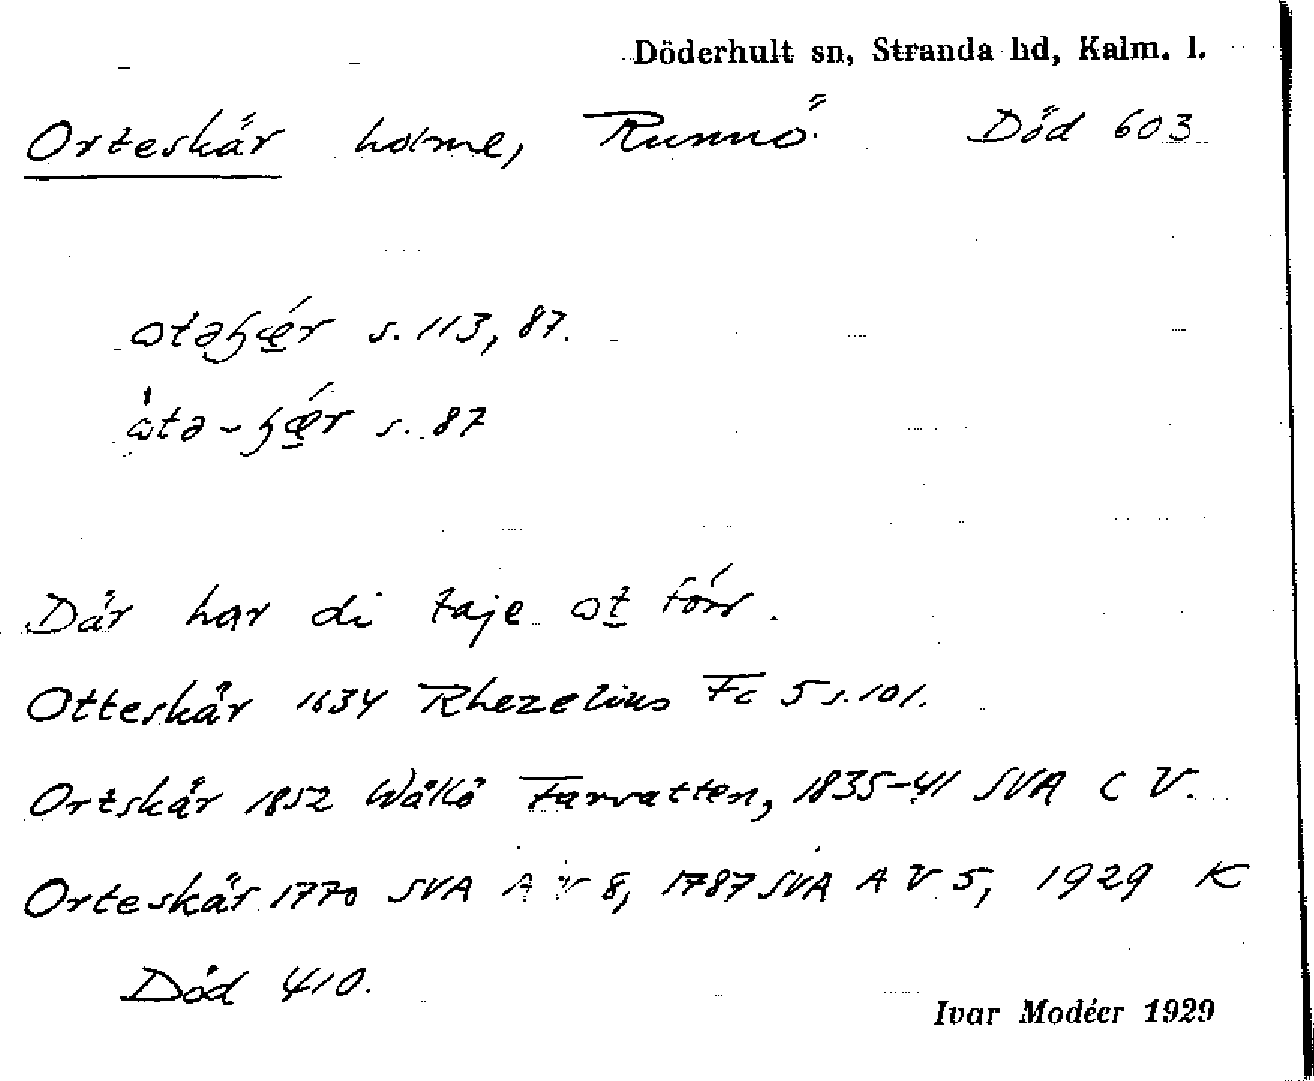 Döderhult sn, Stranda hd, Kalm. l.
Orteskär holme, Runnö. Död 603
otəʒǽr s. 113, 87.
òtə-ʒǽr s. 87
Där har di taje ot förr.
Otteskär 1634 Rhezelius Fc 5 s. 101.
Ortskär 1852 Wållö Farvatten, 1835-41 SVA C V.
Orteskär 1770 SVA A V 8, 1787 SVA A V 5, 1929 K
Död 410.
Ivar Modéer 1929